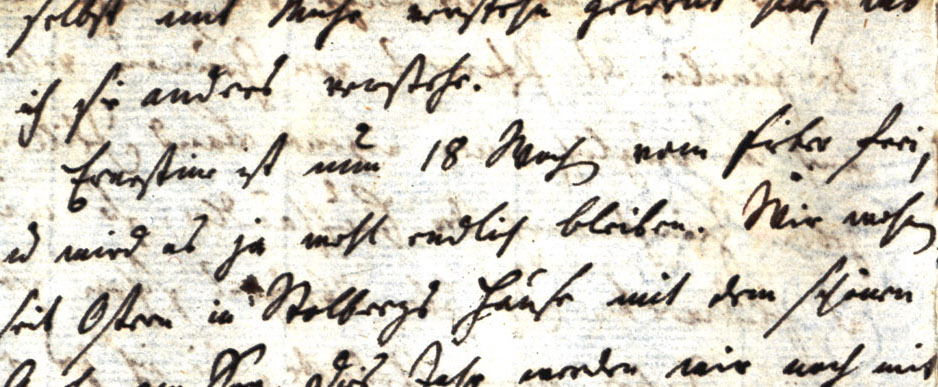 selbst mit Mühe verstehn gelernt hat, als
ich sie anders verstehe.
Ernestine ist nun 18 Woch vom Fieber frei,
u wird es ja wohl endlich bleiben. Wir wohnen
seit Ostern in Stolbergs Hause mit dem schönen
am See. Dies Jahr werden wir noch mit